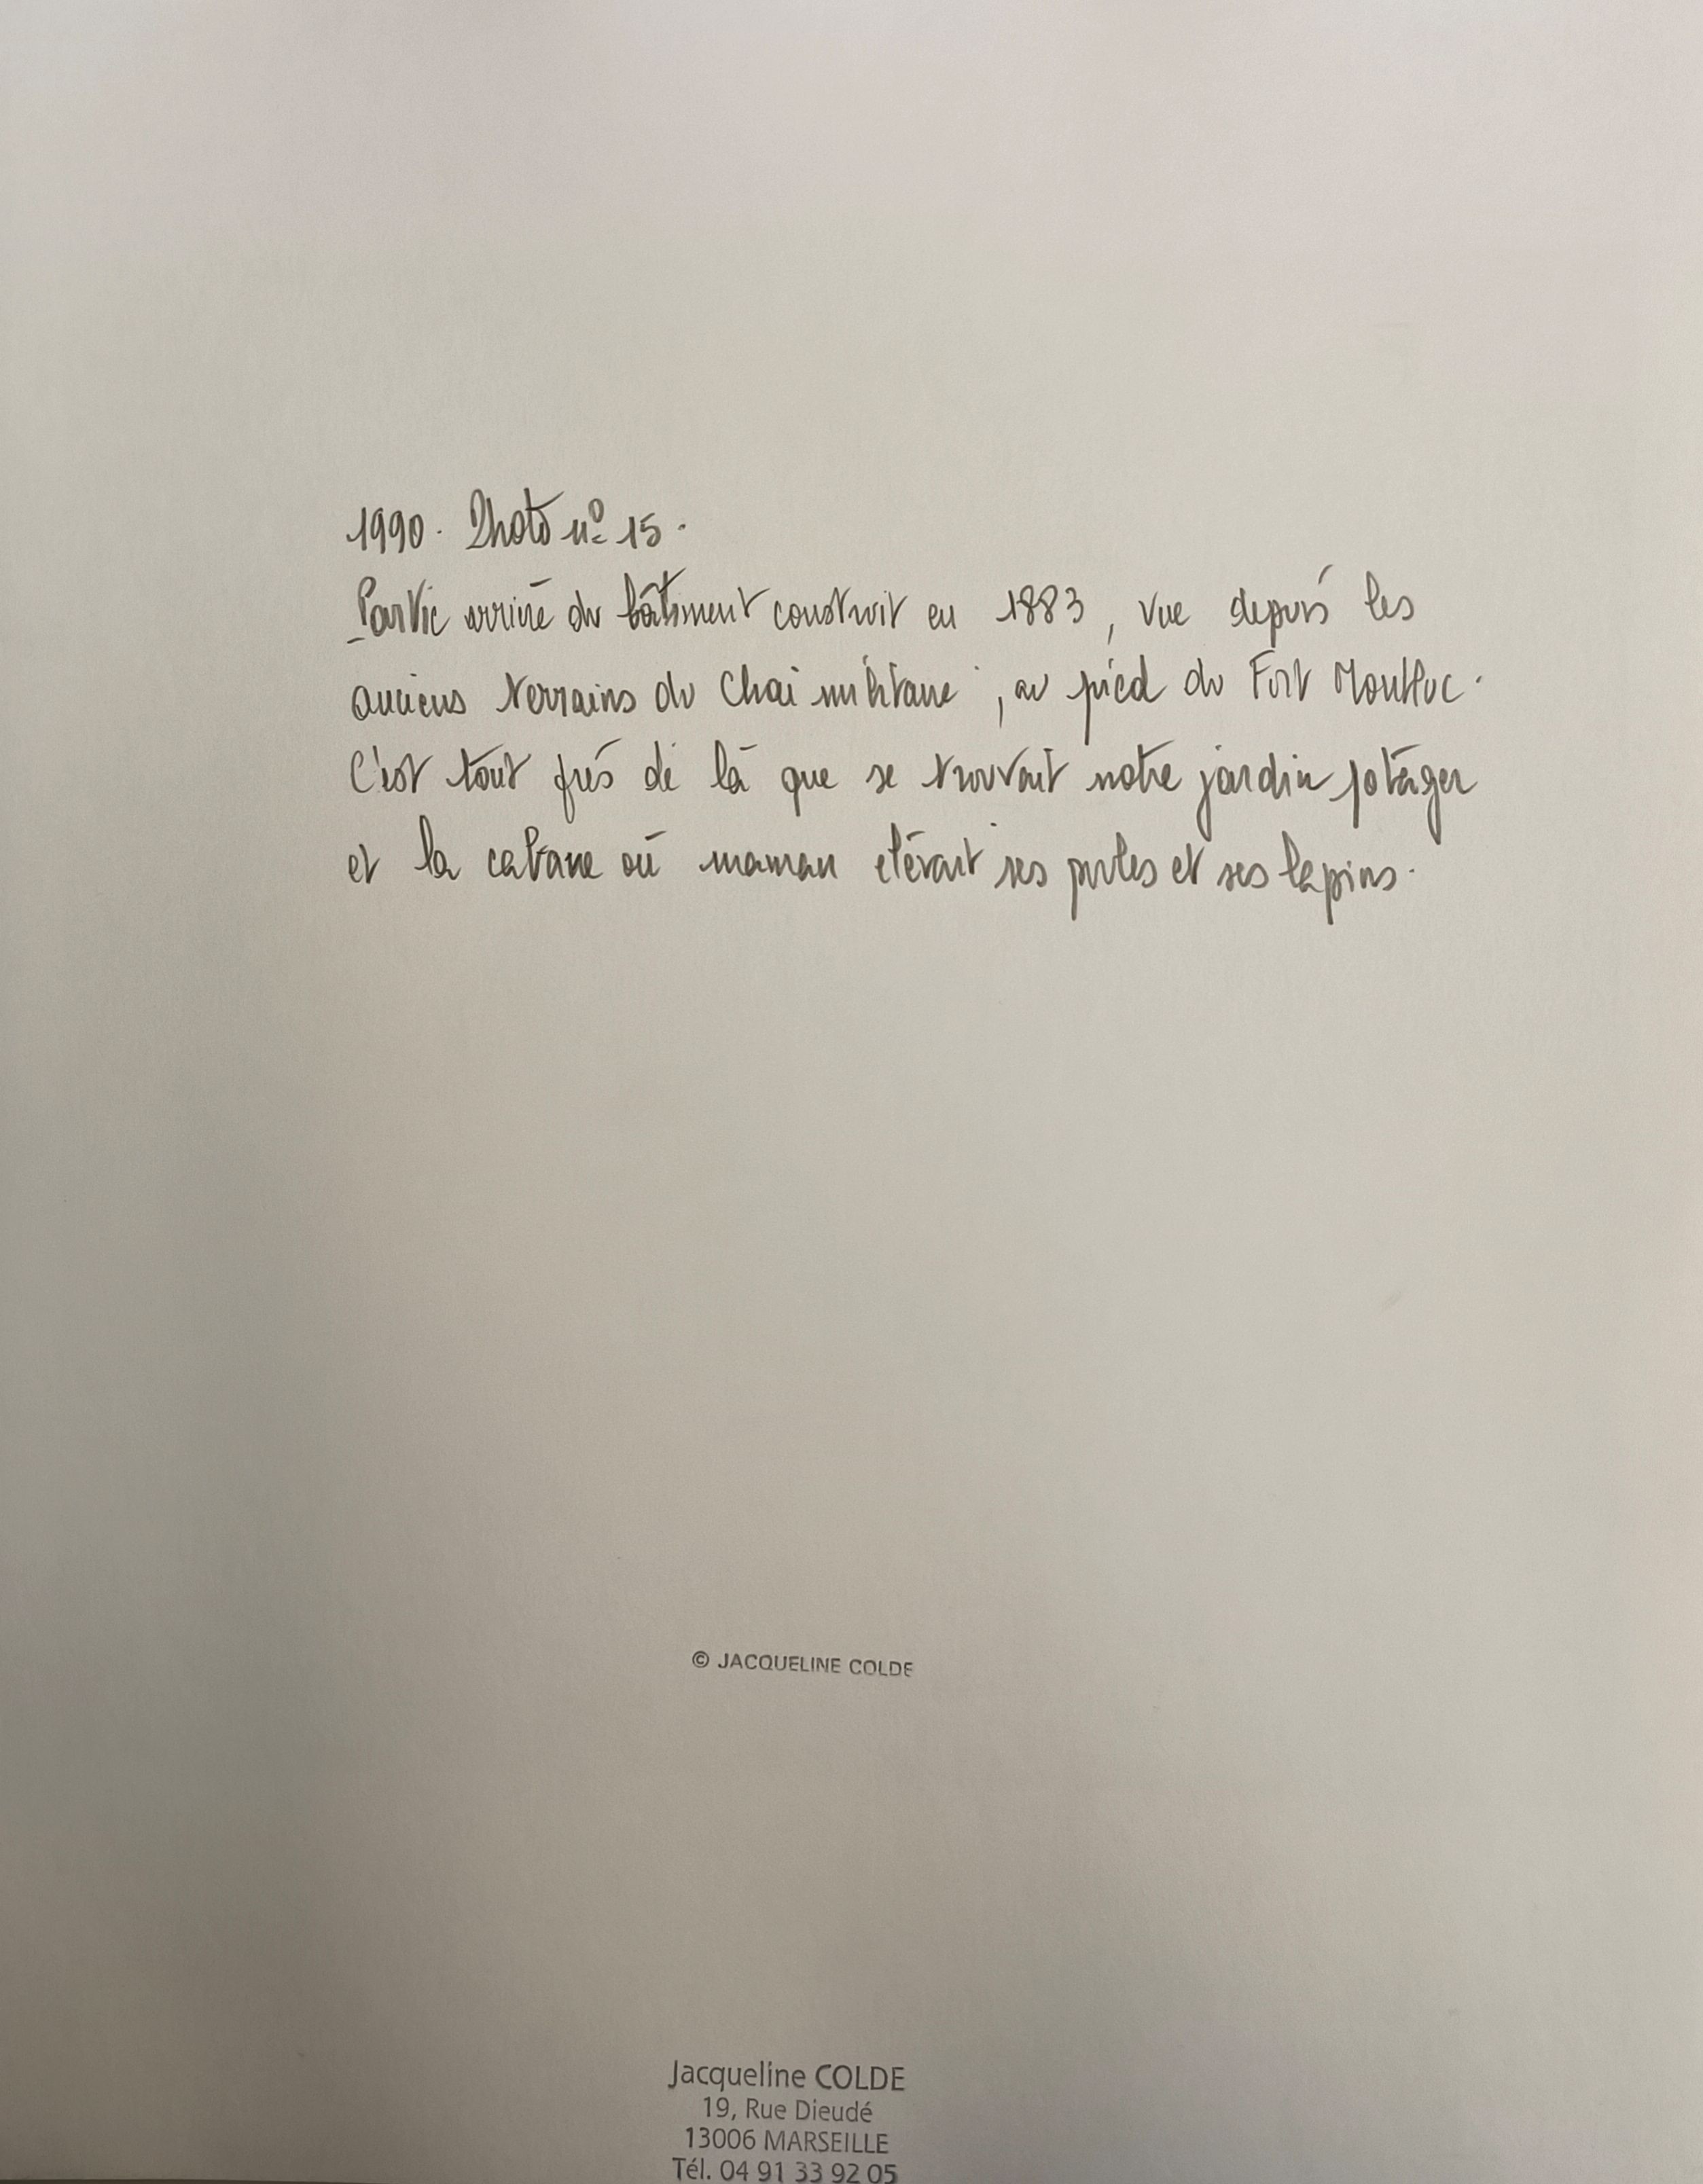 1990. Photo n° 15.
Partie arrière du bâtiment construit en 1883, vue depuis les
anciens terrains du Chai militaire, au pied du Fort Montluc.
C'est tout près de là que se trouvait notre jardin potager
et la cabane où maman élevait ses poules et ses lapins.
© JACQUELINE COLDE
Jacqueline COLDE
19, Rue Dieudé
13006 MARSEILLE
Tél. 04 91 33 92 05